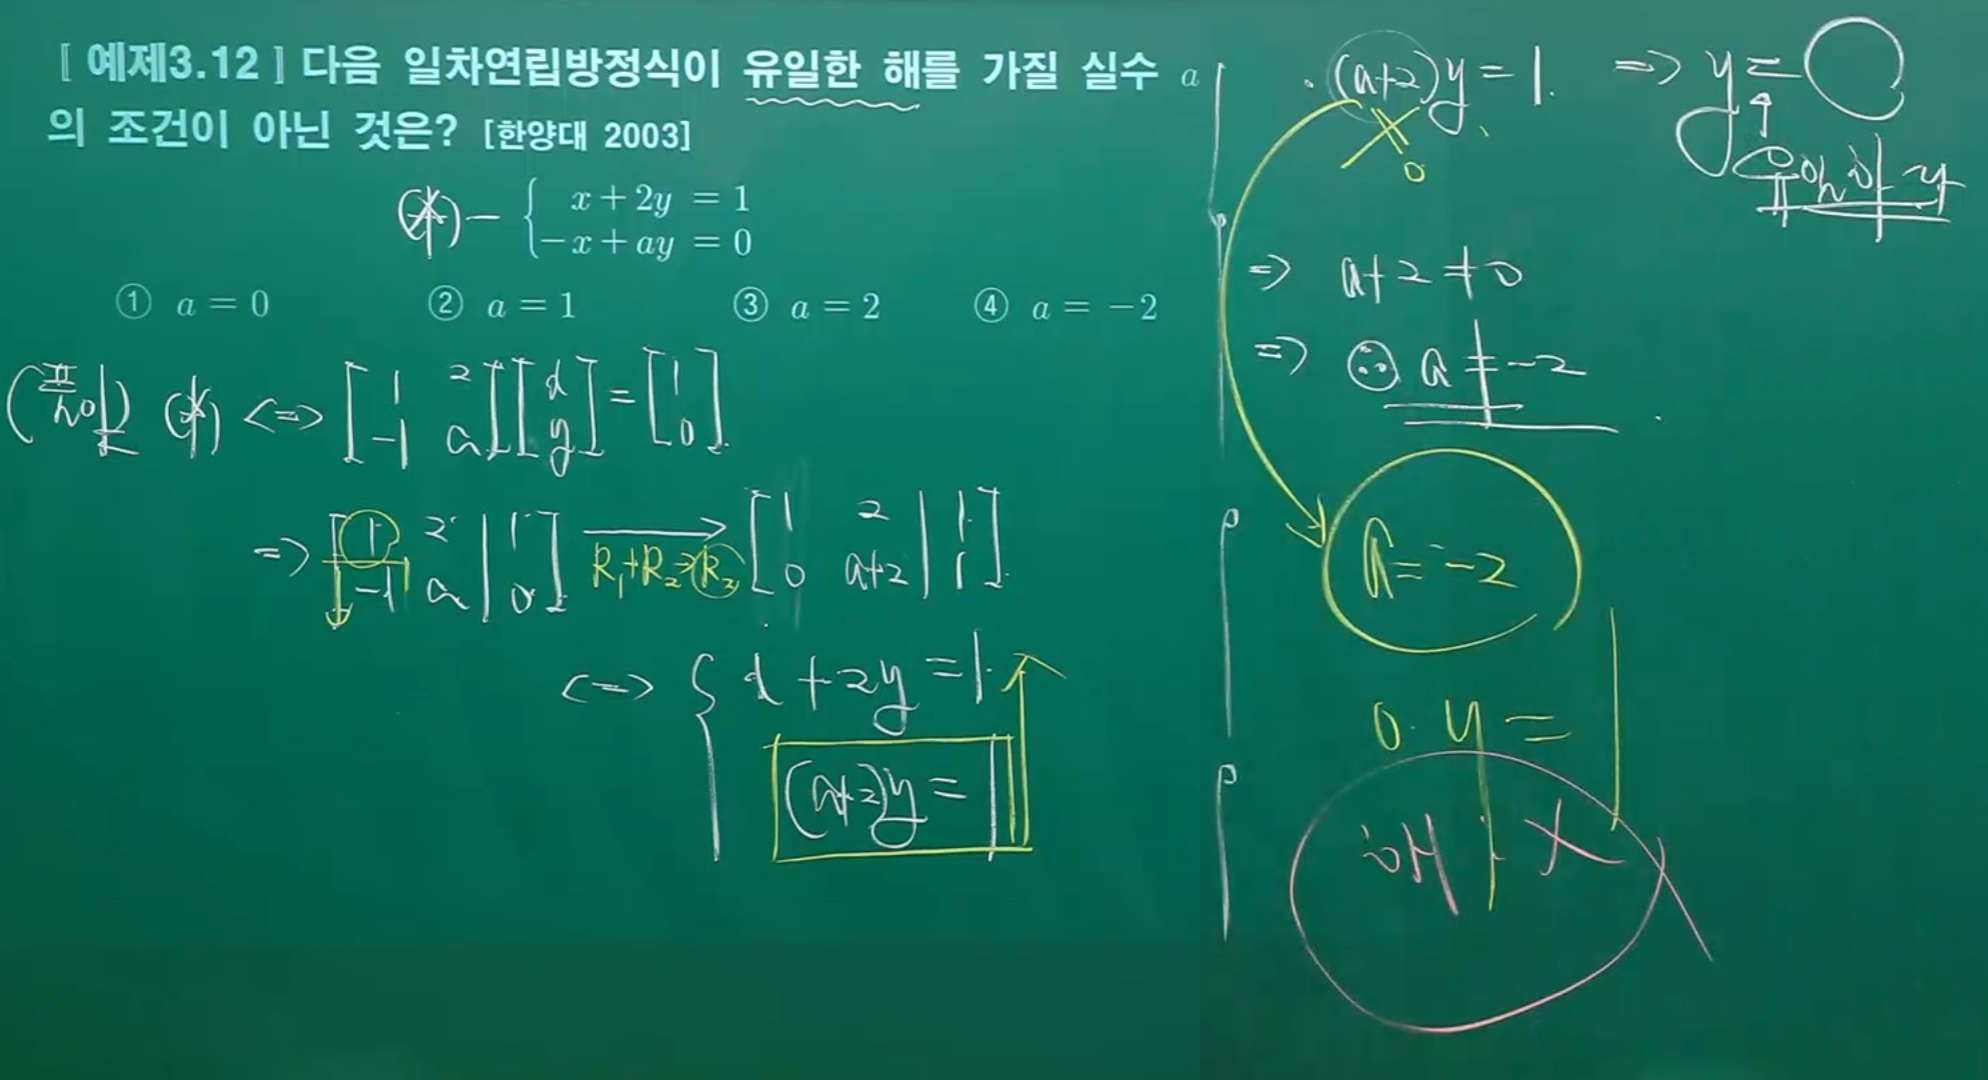 [ 예제3.12 ] 다음 일차연립방정식이 유일한 해를 가질 실수 a
의 조건이 아닌 것은? [한양대 2003]
(*) - { x + 2y = 1
-x + ay = 0
① a = 0 ② a = 1 ③ a = 2 ④ a = -2
(풀이) (*) <=> [1 2 -1 a][x y] = [1 0]
=> [1 2 | 1 -1 a | 0] R₁+R₂→R₂ [1 2 | 1 0 a+2 | 1]
<=> { x + 2y = 1
(a+2)y = 1
(a+2)y = 1 => y = ○
0
유일해
=> a+2 ≠ 0
=> ∴ a ≠ -2
a = -2
0·y = 1
해 X